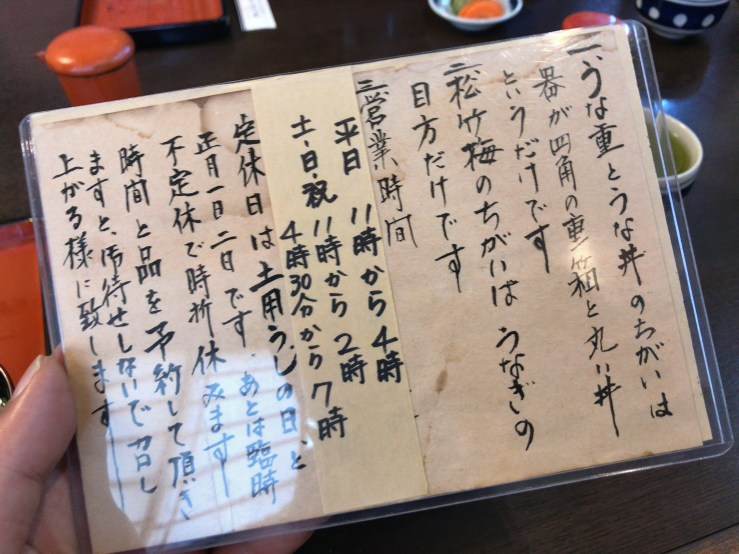 一、うな重とうな丼のちがいは
器が四角の重箱と丸い丼
というだけです
二、松竹梅のちがいは うなぎの
目方だけです
三、営業時間
平日 11時から4時
土・日・祝 11時から2時
4時30分から7時
定休日は土用うしの日、と
正月一日二日です。あとは臨時
不定休で時折休みます
時間と品を予約して頂き
ますと、御待せしないでカロし
上がる様に致します